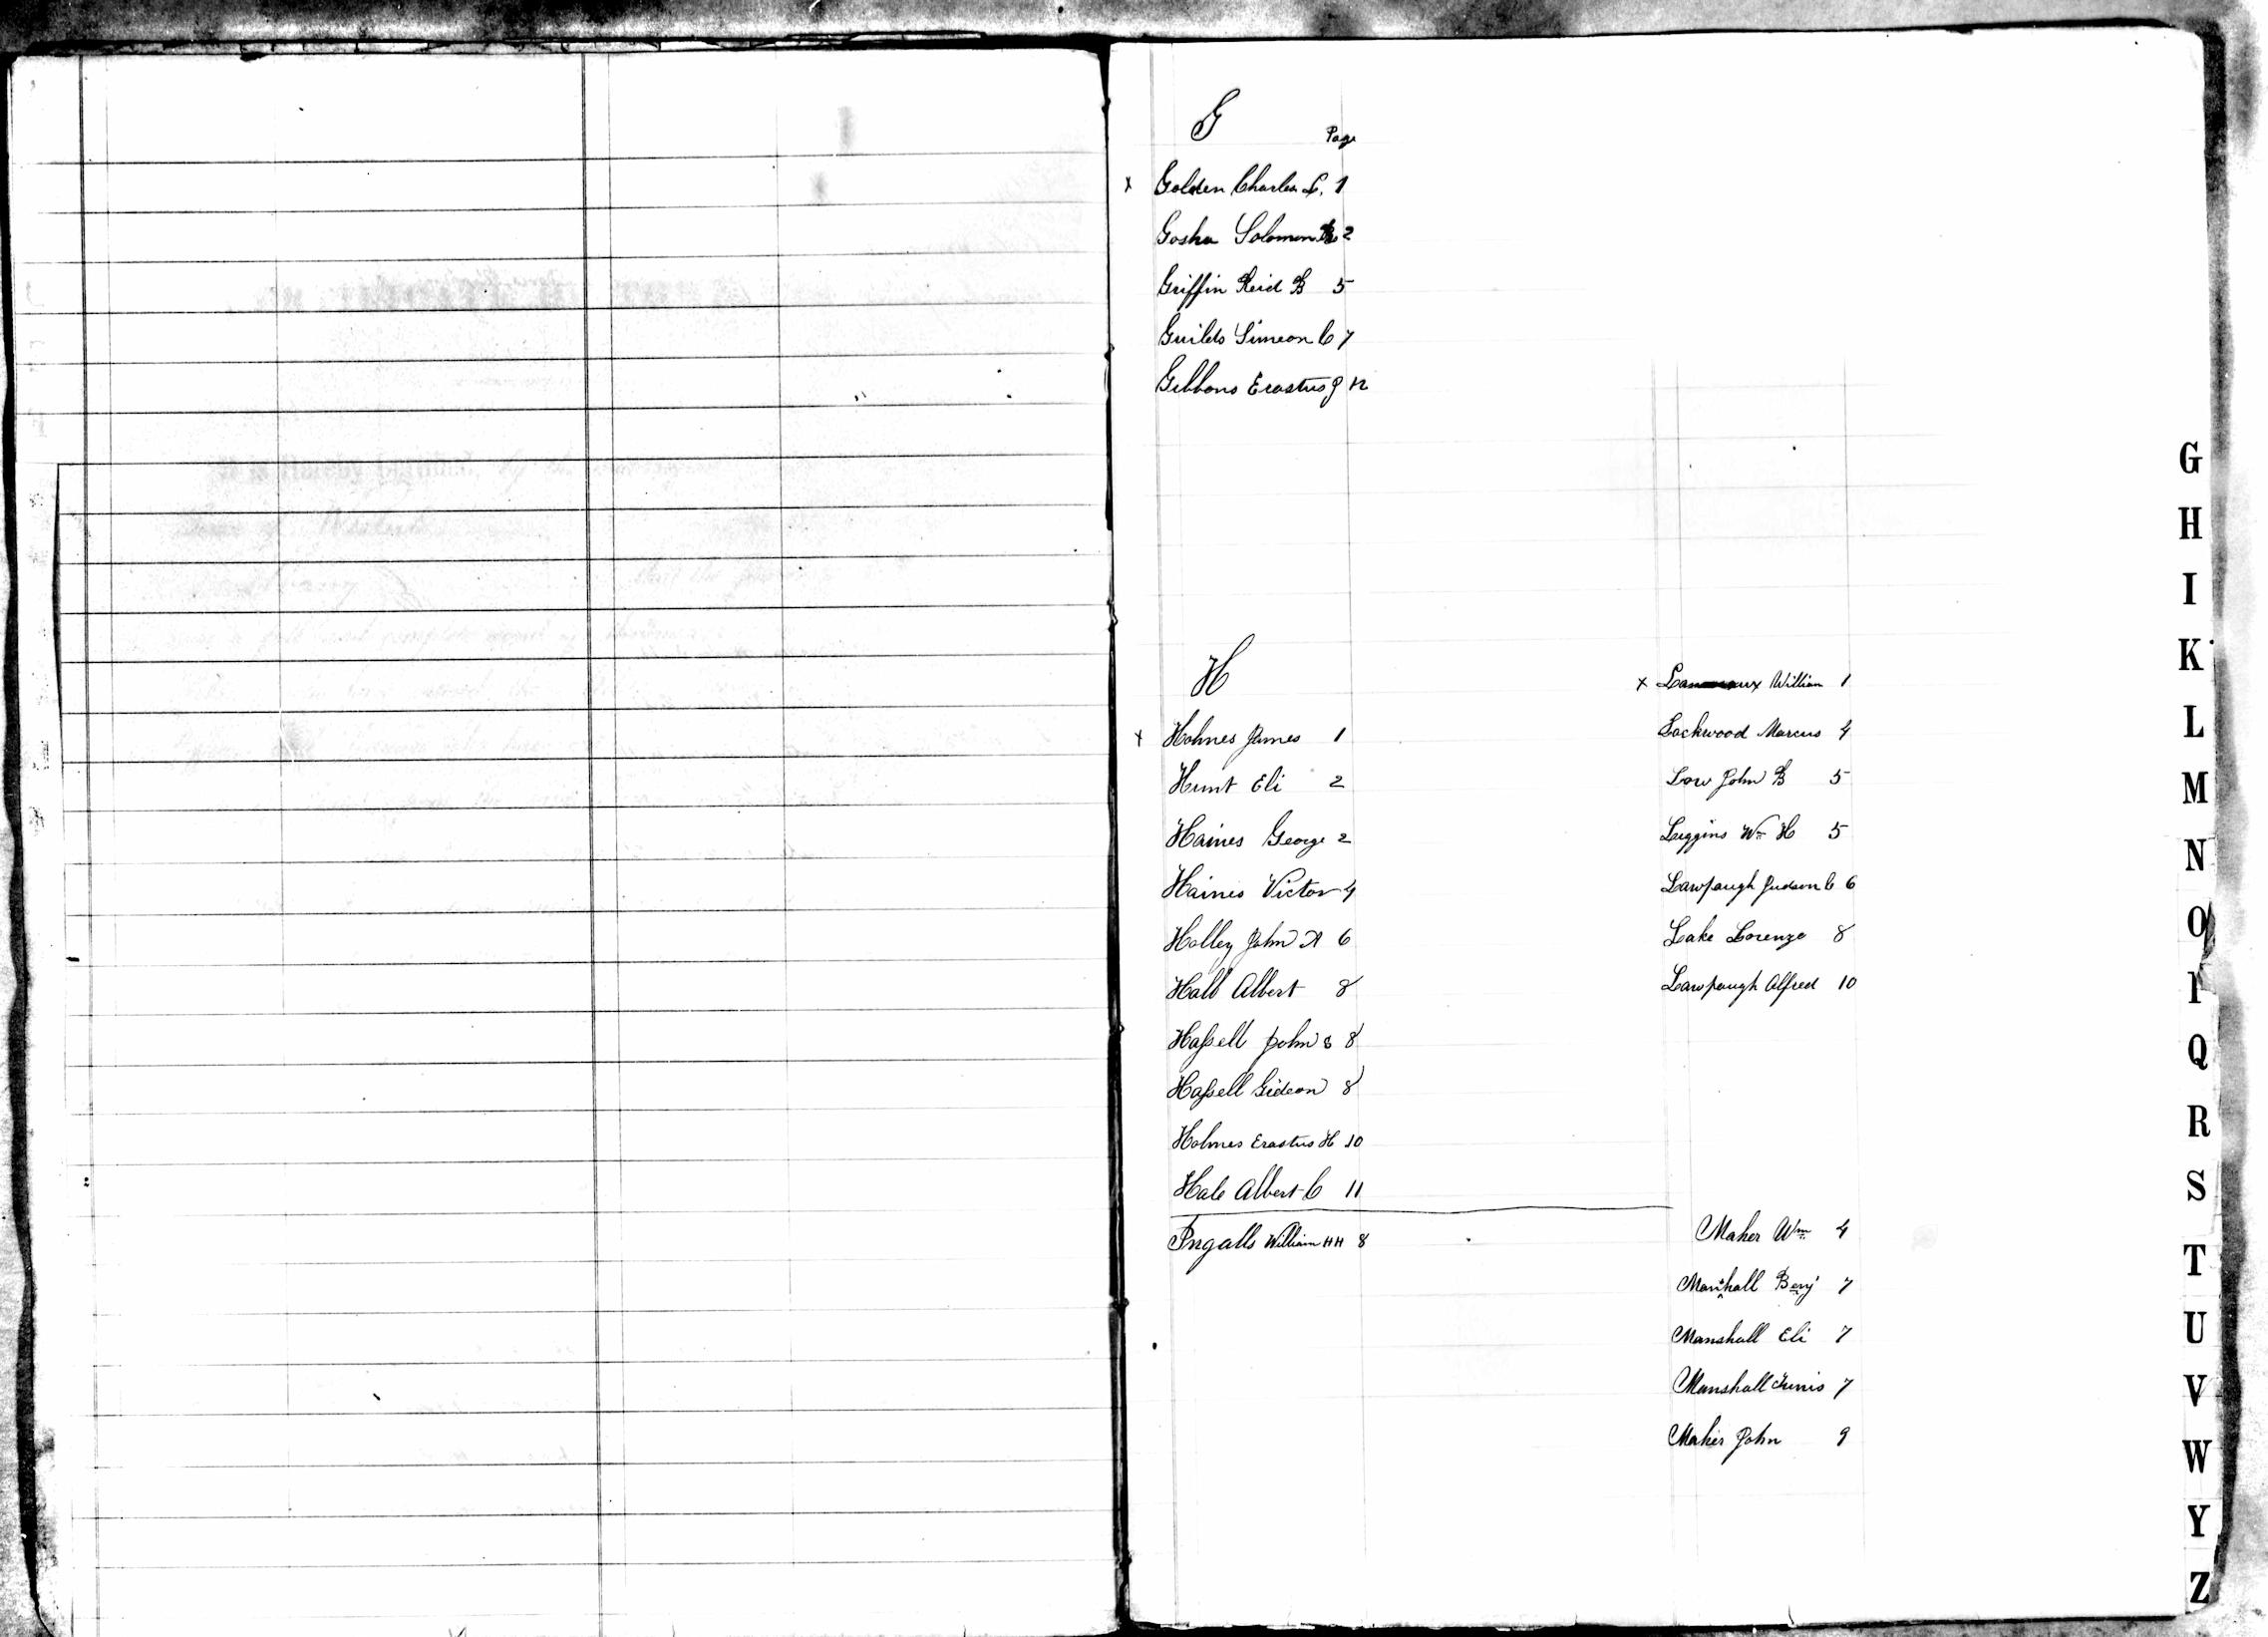 G
Page
x Golden Charles L. 1
Gosha Solomon 2
Griffin Reid B 5
Guilds Simeon C 7
Gibbons Erastus J 12
H
x Holmes James 1
Hunt Eli 2
Haines George 2
Haines Victor 4
Holley John A 6
Hall Albert 8
Haſsell John S 8
Haſsell Gideon 8
Holmes Erastus H 10
Hale Albert C 11
Ingalls William HH 8
x William 1
Lockwood Marcus 4
Low John B 5
Luggins Wm H 5
Lawpaugh Judson C 6
Lake Lorenzo 8
Lawpaugh Alfred 10
Maher Wm 4
Marshall Benj 7
Marshall Eli 7
Marshall Tunis 7
Maher John 9
G
H
I
K
L
M
N
O
P
Q
R
S
T
U
V
W
Y
Z